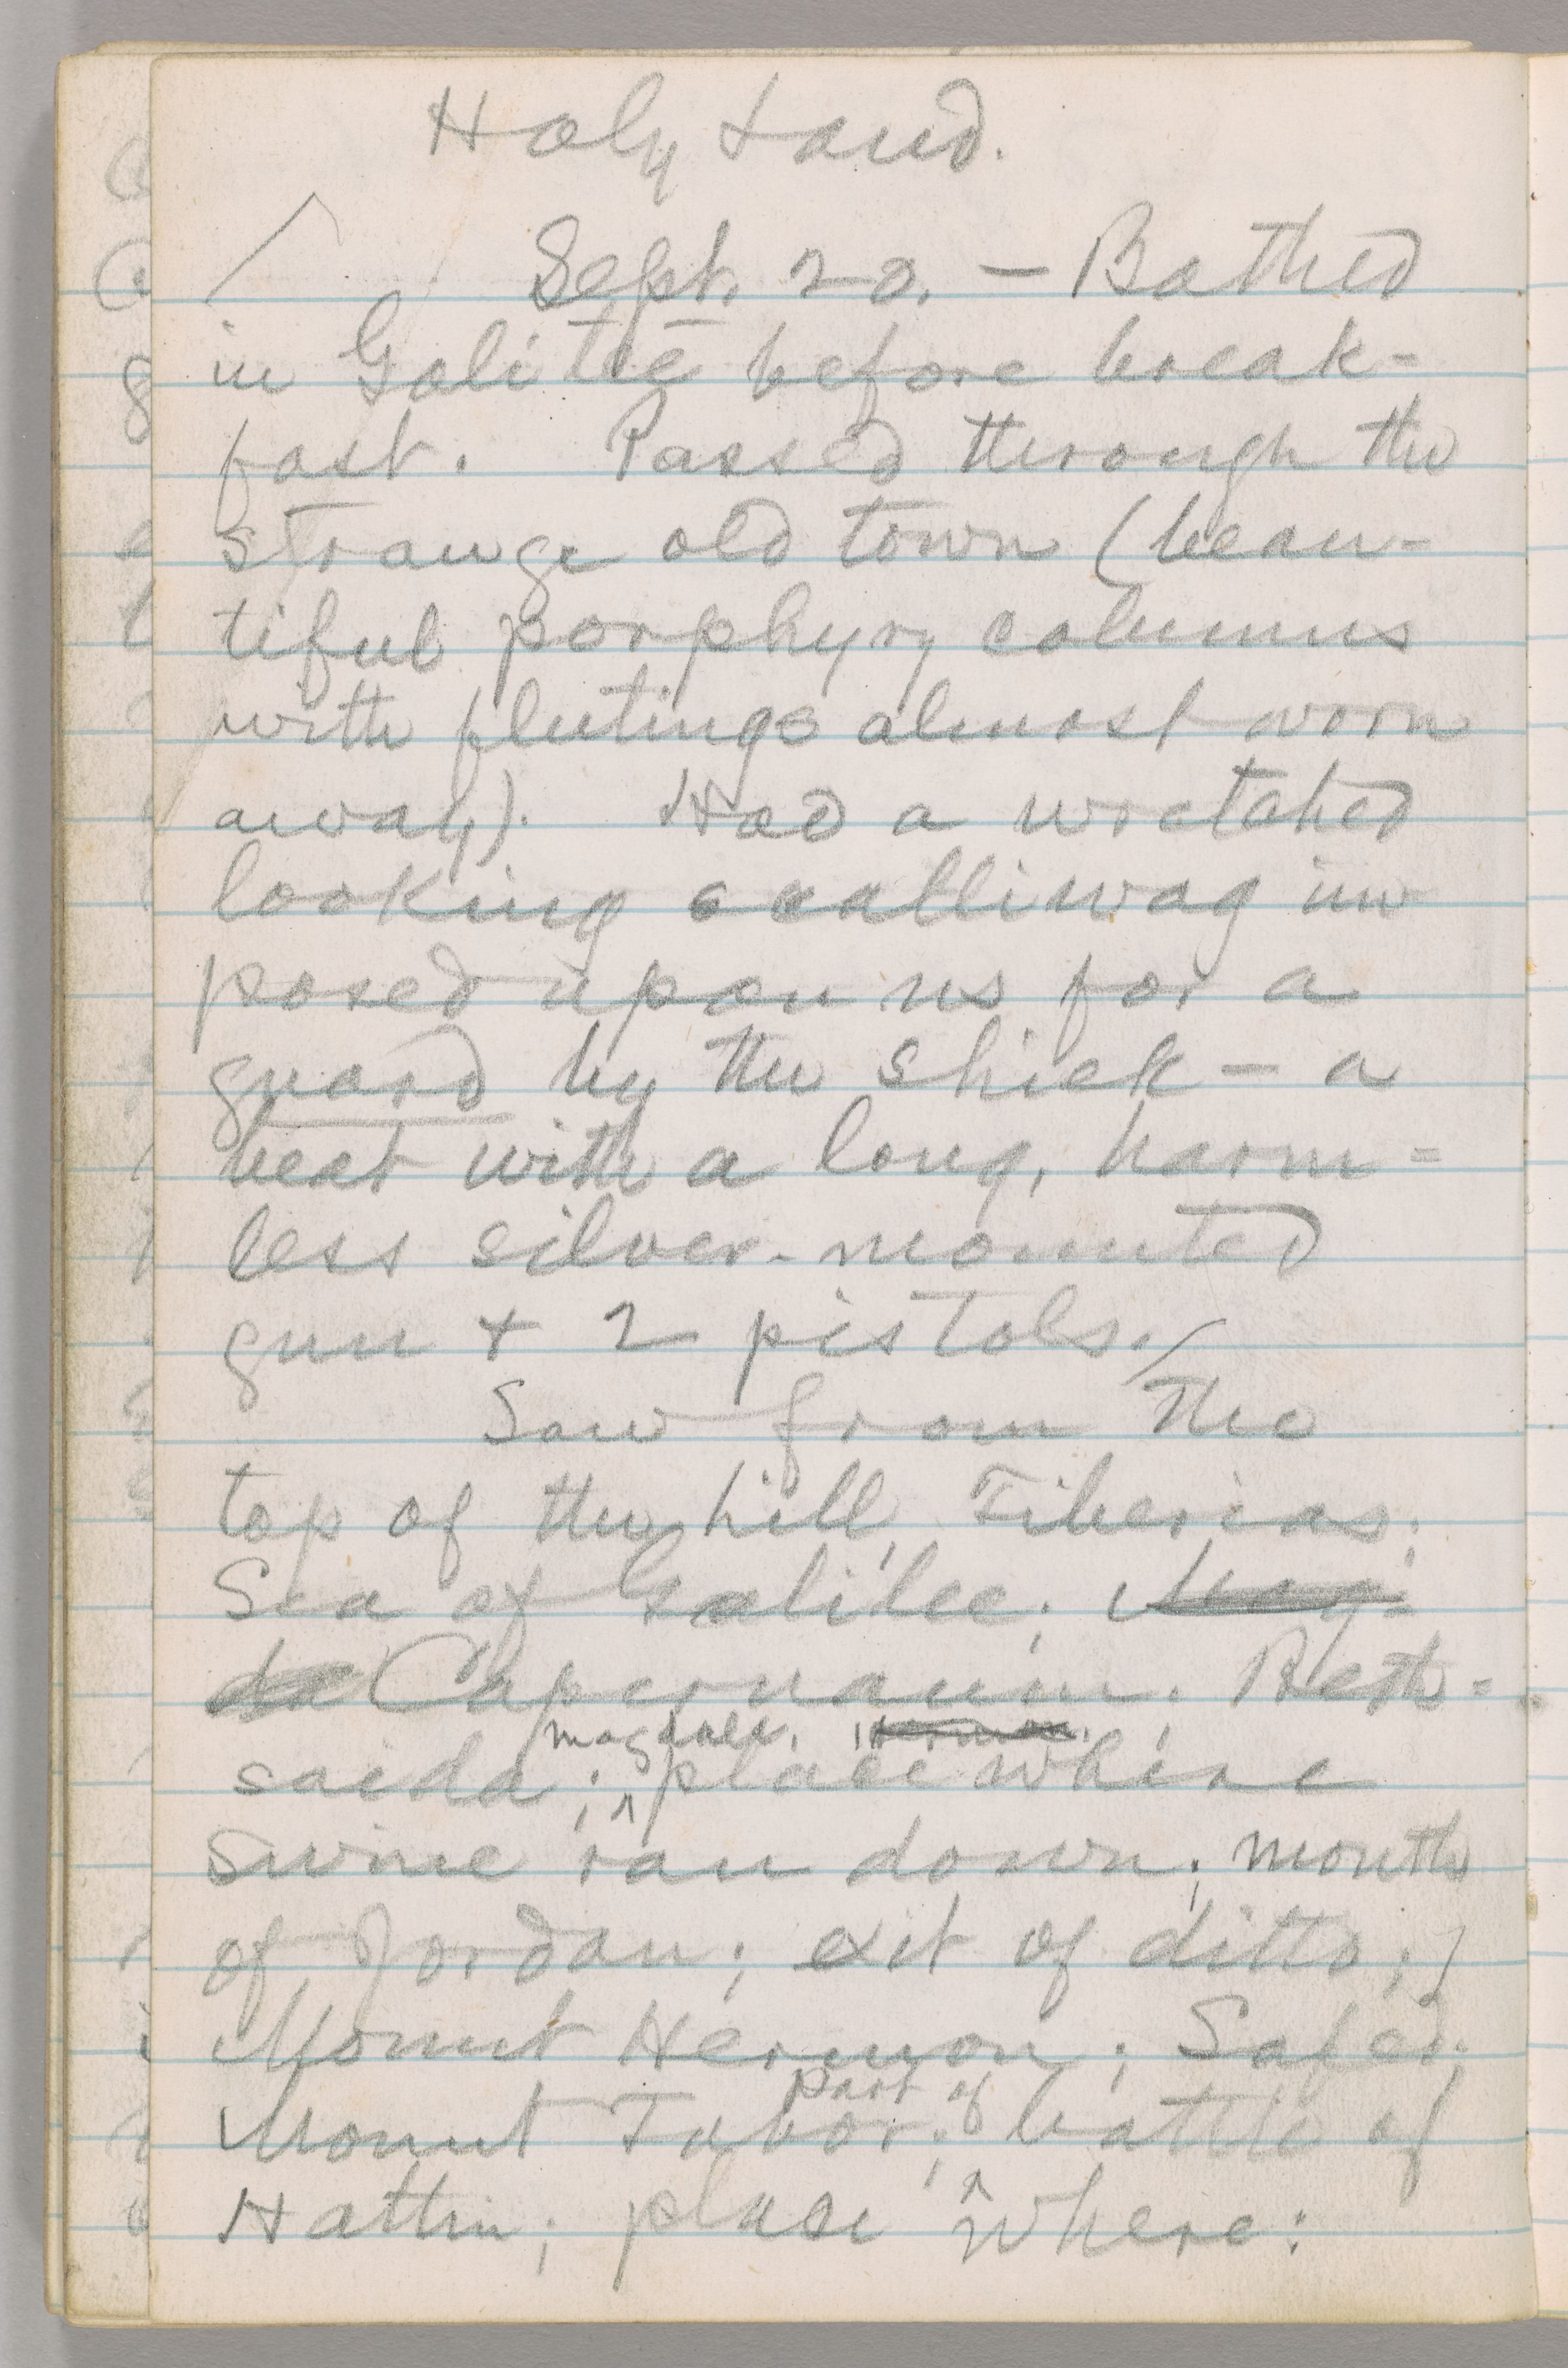 Holy Land.
Sept. 20. — Bathed
in Galilee before break-
fast. Passed through the
strange old town (beau-
tiful porphyry columns
with flutings almost worn
away). Had a wretched
looking scalliwag im
posed upon us for a
guard by the shiek — a
beat with a long, harm=
less silver-mounted
gun + 2 pistols.
Saw from the
top of the hill, Tiberias;
Sea of Galilee; Mag=
da Capernaum; Beth=
Magdala, Hermon.
saida; ^ place where
swine ran down; mouth
of Jordan; exit of ditto;
Mount Hermon; Safed;
part of
Mount Tabor; ^ battle of
Hattin; place where: